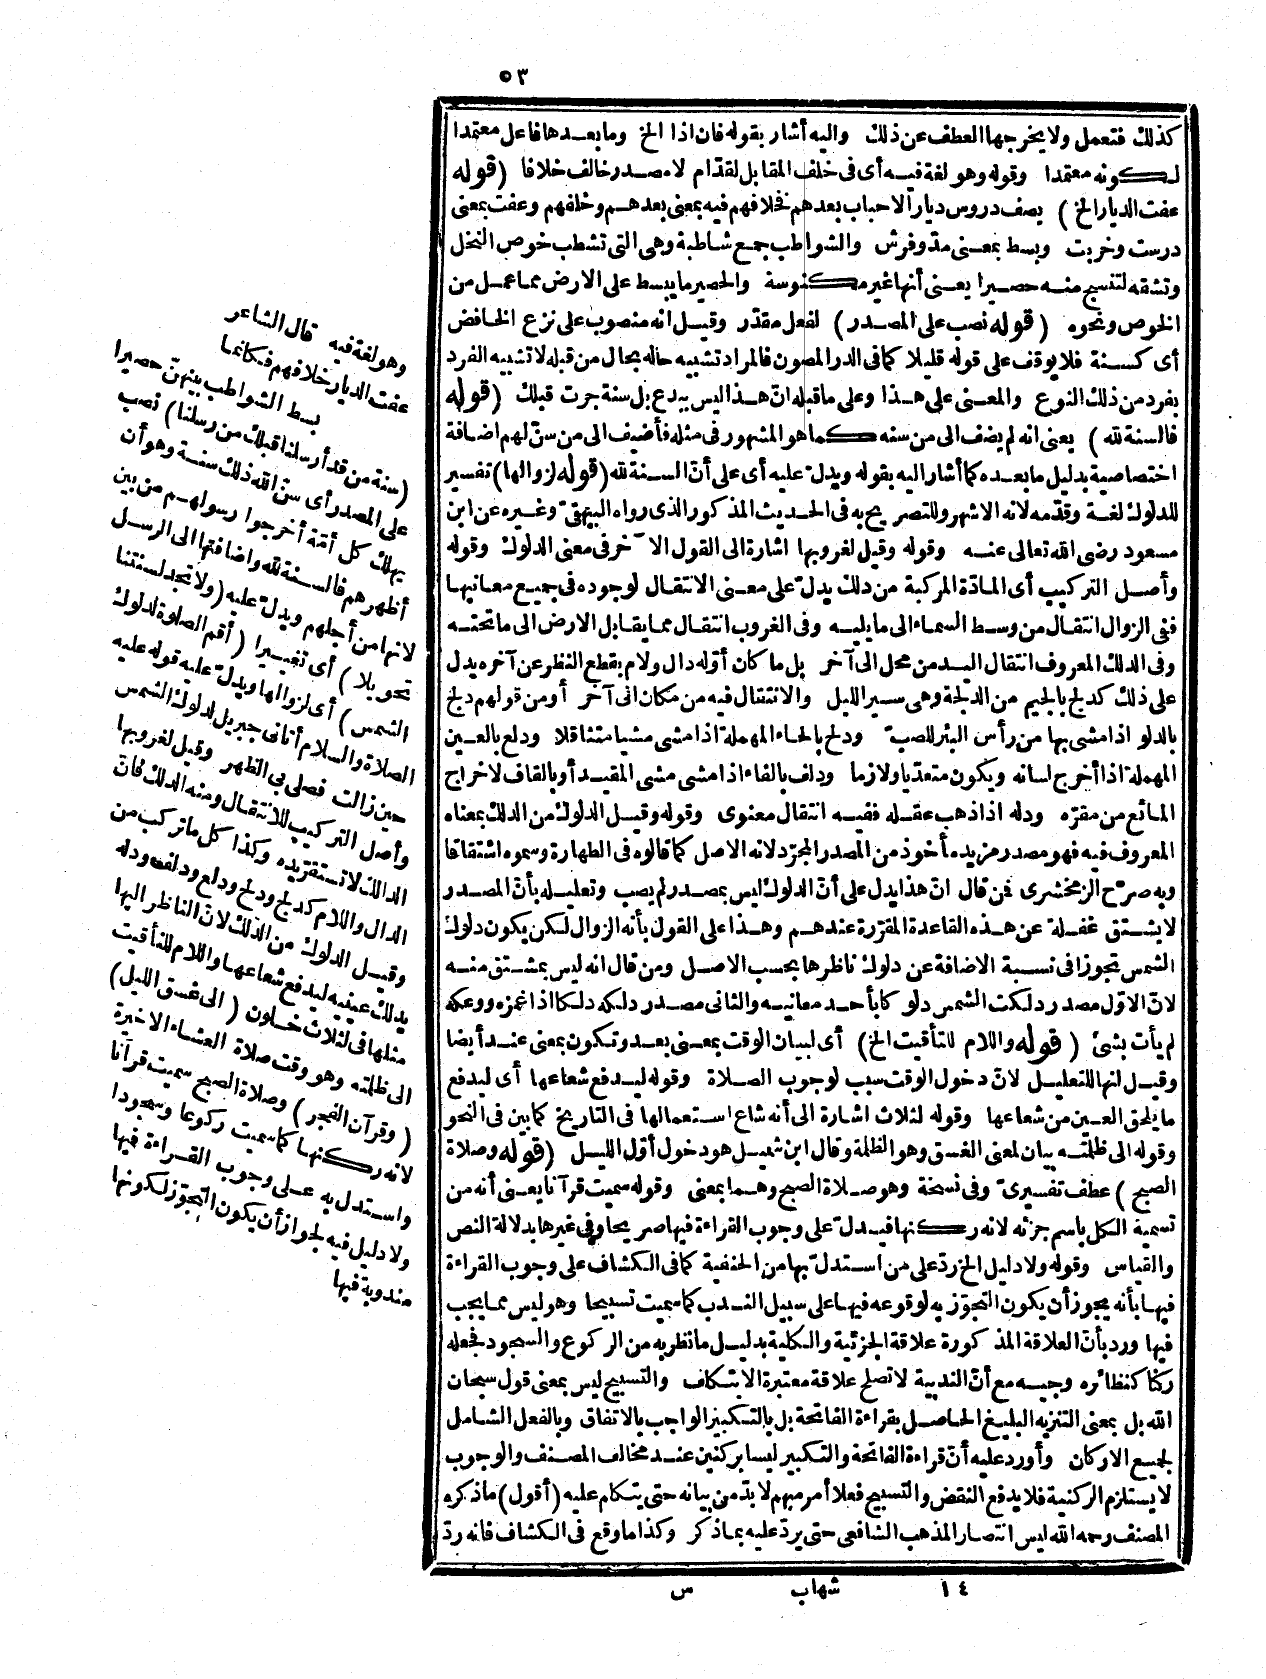 ٥٣
كذلك فتعمل ولا يخرجها العطف عن ذلك واليه أشار بقوله فان اذا الخ وما بعدها فاعل معتمدا
لكونه معتمدا وقوله وهو لغة فيه أى فى خلف المقابل لقدّام لا مصدر خالف خلافا (قوله
عفت الديار الخ) يصف دروس ديار الاحباب بعدهم فخلافهم فيه بمعنى بعدهم وخلفهم وعفت بمعنى
درست وخربت وبسط بمعنى مدّ وفرش والشواطب جمع شاطبة وهى التى تشطب خوص النخل
وتشقه لتنسج منه حصيرا يعنى أنها غير مكنوسة والحصير ما يبسط على الارض مما عمل من
الخوص ونحوه (قوله نصب على المصدر) لفعل مقدّر وقيل انه منصوب على نزع الخافض
أى كسنة فلا يوقف على قوله قليلا كما فى الدر المصون فالمراد تشبيه حاله بحال من قبله لا تشبيه الفرد
بفرد من ذلك النوع والمعنى على هذا وعلى ما قبله انّ هذا ليس ببدع بل سنة جرت قبلك (قوله
فالسنة لله) يعنى انه لم يضف الى من سنه كما هو المشهور فى مثله فأضيف الى من سنّ لهم اضافة
اختصاصية بدليل ما بعده كما أشار اليه بقوله ويدلّ عليه أى على أنّ السنة لله (قوله لزوالها) تفسير
للدلوك لغة وقدّمه لانه الاشهر وللتصريح به فى الحديث المذكور الذى رواه البيهقىّ وغيره عن ابن
مسعود رضى الله تعالى عنه وقوله وقيل لغروبها اشارة الى القول الآخر فى معنى الدلوك وقوله
وأصل التركيب أى المادّة المركبة من دلك يدلّ على معنى الانتقال لوجوده فى جميع معانيها
ففى الزوال انتقال من وسط السماء الى ما يليه وفى الغروب انتقال مما يقابل الارض الى ما تحته
وفى الدلك المعروف انتقال اليد من محل الى آخر بل ما كان أوّله دال ولام بقطع النظر عن آخره يدل
على ذلك كدلج بالجيم من الدلجة وهى سير الليل والانتقال فيه من مكان الى آخر أو من قولهم دلج
بالدلو اذا مشى بها من رأس البئر للصبّ ودلح بالحاء المهملة اذا مشى مشيا متثاقلا ودلع بالعين
المهملة اذا أخرج لسانه ويكون متعدّيا ولازما ودلف بالفاء اذا مشى مشى المقيد أو بالقاف لاخراج
المائع من مقرّه ودله اذا ذهب عقله ففيه انتقال معنوى وقوله وقيل الدلوك من الدلك بمعناه
المعروف فيه فهو مصدر مزيده مأخوذ من المصدر المجرّد لانه الاصل كما قالوه فى الطهارة وسموه اشتقاقا
وبه صرّح الزمخشرى فمن قال انّ هذا يدل على أنّ الدلوك ليس بمصدر لم يصب وتعليله بأنّ المصدر
لا يشتق غفلة عن هذه القاعدة المقرّرة عندهم وهذا على القول بأنه الزوال لكن يكون دلوك
الشمس تجوزا فى نسبة الاضافة عن دلوك ناظرها بحسب الاصل ومن قال انه ليس بمشتق منه
لانّ الاوّل مصدر دلكت الشمس دلوكا بأحد معانيه والثانى مصدر دلكه دلكا اذا غمزه ووعكه
لم يأت بشئ (قوله واللام للتأقيت الخ) أى لبيان الوقت بمعنى بعد وتكون بمعنى عند أيضا
وقيل انها للتعليل لانّ دخول الوقت سبب لوجوب الصلاة وقوله ليدفع شعاعها أى ليدفع
ما يلحق العين من شعاعها وقوله لثلاث اشارة الى أنه شاع استعمالها فى التاريخ كما بين فى النحو
وقوله الى ظلمته بيان لمعنى الغسق وهو الظلمة وقال ابن شميل هو دخول أوّل الليل (قوله وصلاة
الصبح) عطف تفسيرىّ وفى نسخة وهو صلاة الصبح وهما بمعنى وقوله سميت قرآنا يعنى أنه من
تسمية الكل باسم جزئه لانه ركنها فيدلّ على وجوب القراءة فيها صريحا وفى غيرها بدلالة النص
والقياس وقوله ولا دليل الخ ردّ على من استدلّ بها من الحنفية كما فى الكشاف على وجوب القراءة
فيها بأنه يجوز أن يكون التجوّز به لوقوعه فيها على سبيل الندب كما سميت تسبيحا وهو ليس مما يجب
فيها ورد بأنّ العلاقة المذكورة علاقة الجزئية والكلية بدليل ما نظر به من الركوع والسجود فجعله
ركنا كنظائره وجيه مع أنّ الندبية لا تصلح علاقة معتبرة الا بتكلف والتسبيح ليس بمعنى قول سبحان
الله بل بمعنى التنزيه البليغ الحاصل بقراءة الفاتحة بل بالتكبير الواجب بالاتفاق وبالفعل الشامل
لجميع الاركان وأورد عليه أنّ قراءة الفاتحة والتكبير ليسا بركنين عند مخالف المصنف والوجوب
لا يستلزم الركنية فلا يدفع النقض والتسبيح فعلا أمر مبهم لا بدّ من بيانه حتى يتكلم عليه (أقول) ما ذكره
المصنف رحمه الله ليس انتصار المذهب الشافعى حتى يردّ عليه بما ذكر وكذا ما وقع فى الكشاف فانه ردّ
وهو لغة فيه قال الشاعر
عفت الديار خلافهم فكأنما
بسط الشواطب بينهنّ حصيرا
(سنة من قد أرسلنا قبلك من رسلنا) نصب
على المصدر أى سنّ الله ذلك سنة وهو أن
يهلك كل أمّة أخرجوا رسولهم من بين
أظهرهم فالسنة لله واضافتها الى الرسل
لانها من أجلهم ويدلّ عليه (ولا تجد لسنتنا
تحويلا) أى تغييرا (أقم الصلوة لدلوك
الشمس) أى لزوالها ويدلّ عليه قوله عليه
الصلاة والسلام أتانى جبريل لدلوك الشمس
حين زالت فصلى بى الظهر وقيل لغروبها
وأصل التركيب للانتقال ومنه الدلك فانّ
الدالك لا تستقرّ يده وكذا كل ما تركب من
الدال واللام كدلج ودلح ودلع ودلف ودله
وقيل الدلوك من الدلك لانّ الناظر اليها
يدلك عينيه ليدفع شعاعها واللام للتأقيت
مثلها فى لثلاث خلون (الى غسق الليل)
الى ظلمته وهو وقت صلاة العشاء الاخيرة
(وقرآن الفجر) وصلاة الصبح سميت قرآنا
لانه ركنها كما سميت ركوعا وسجودا
واستدل به على وجوب القراءة فيها
ولا دليل فيه لجواز أن يكون التجوّز لكونها
مندوبة فيها
١٤ شهاب س